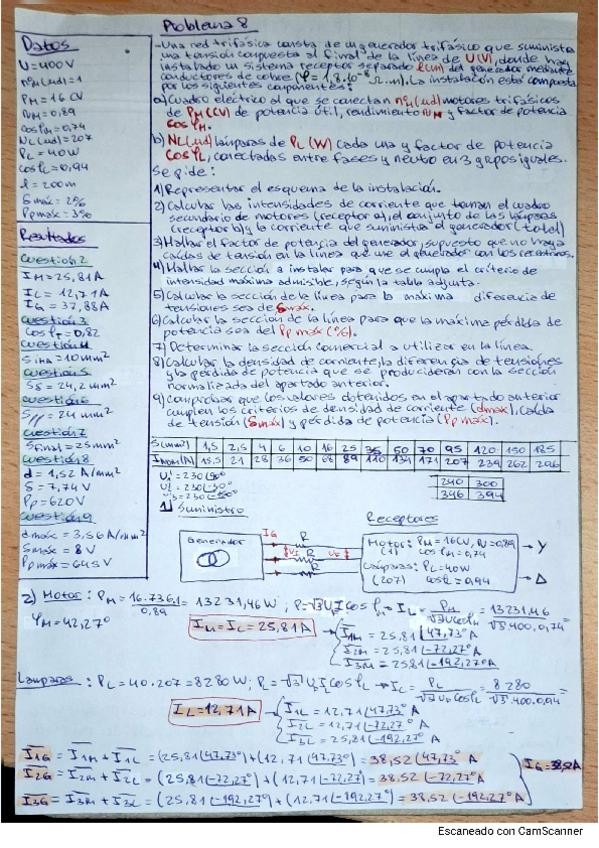 Problema 8
Datos
U=400V
nºM(ud)=1
PM=16 CV
ηM=0,89
cosφM=0,74
NL(ud)=207
PL=40W
cosφL=0,94
l=200m
Smáx=2%
Ppmáx=3%
Resultados
Cuestión 2
IM=25,81A
IL=12,71A
IG=37,88A
Cuestión 3
CosφT=0,82
Cuestión 4
SIMA=10mm²
Cuestión 5
Sδ=24,2mm²
Cuestión 6
S//=24mm²
Cuestión 7
Sfinal=25mm²
Cuestión 8
d=1,52 A/mm²
δ=7,74V
Pp=620V
Cuestión 9
dmáx=3,56 A/mm²
Smáx=8V
Ppmáx=645V
-Una red trifásica consta de un generador trifásico que suministra
una tensión compuesta al final de la línea de U(V), donde hay
instalado un sistema receptor separado l(m) del generador mediante
conductores de cobre (φ=1,8·10⁻⁸ Ω·m). La instalación está compuesta
por los siguientes componentes:
a) Cuadro eléctrico al que se conectan nºM(ud) motores trifásicos
de PM(CV) de potencia útil, rendimiento ηM y factor de potencia
cosφM.
b) NL(ud) lámparas de PL(W) cada una y factor de potencia
CosφL, conectadas entre fases y neutro en 3 grupos iguales.
Se pide:
1) Representar el esquema de la instalación.
2) Calcular las intensidades de corriente que toman el cuadro
secundario de motores (receptor a), el conjunto de las lámparas
(receptor b) y la corriente que suministra el generador (total)
3) Hallar el factor de potencia del generador, supuesto que no haya
caídas de tensión en la línea que une el generador con los receptores.
4) Hallar la sección a instalar para que se cumpla el criterio de
intensidad máxima admisible, según la tabla adjunta.
5) Calcular la sección de la línea para la máxima diferencia de
tensiones sea de Smáx.
6) Calcular la sección de la línea para que la máxima pérdida de
potencia sea del Pp máx (%).
7) Determinar la sección comercial a utilizar en la línea.
8) Calcular la densidad de corriente, la diferencia de tensiones
y la pérdida de potencia que se producirán con la sección
normalizada del apartado anterior.
9) Comprobar que los valores obtenidos en el apartado anterior
cumplen los criterios de densidad de corriente (dmax), caída
de tensión (Smáx) y pérdida de potencia (Pp máx).
S(mm²) 1,5 2,5 4 6 10 16 25 35 50 70 95 120 150 185
INOM(A) 15,5 21 28 36 50 68 89 110 134 171 207 239 262 296
240 300
346 394
U1=230|90°
U2=230|-30°
U3=230|-150°
1) Suministro
Receptores
Generador
IG
R
UI
R
UF
R
Motor: PM=16CV, η=0,89
(1) cosφM=0,74
Lámparas: PL=40W
(207) cosφL=0,94
Y
Δ
2) Motor: PM=16.736,1/0,89=13231,46W; P=√3ULI cosφM→IL=PM/√3UL cosφM=13231,46/√3·400·0,74=
φM=42,27°
IM=IL=25,81A
I1M=25,81|47,73° A
I2M=25,81|-72,27° A
I3M=25,81|-192,27° A
Lámparas: PL=40·207=8280W; PL=√3ULI cosφL→IL=PL/√3UL cosφL=8280/√3·400·0,94=
IL=12,71A
I1L=12,71|47,73° A
I2L=12,71|-72,27° A
I3L=25,81|-192,27° A
I1G=I1M+I1L=(25,81|47,73°)+(12,71|47,73°)=38,52|47,73° A
I2G=I2M+I2L=(25,81|-72,27°)+(12,71|-72,27)=38,52|-72,27° A
I3G=I3M+I3L=(25,81|-192,27°)+(12,71|-192,27°)=38,52|-192,27° A
IG=38,52A
Escaneado con CamScanner